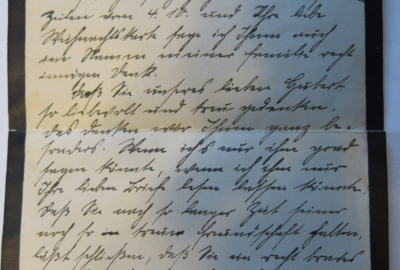 Zeilen vom 4. 10. und Ihre liebe
Weihnachtskarte sage ich Ihnen auch
im Namen meiner Familie recht
innigen Dank.
Daß Sie unseres lieben Hubert
so liebevoll und treu gedenken,
das danken wir Ihnen ganz be-
sonders. Wenn ich's nur ihm grad
sagen könnte, wenn ich ihn nur
Ihre lieben Brief lesen lassen könnte.
Daß Sie nach so langer Zeit seiner
noch so in treuer Freundschaft halten,
läßt schließen, daß Sie ein recht braves